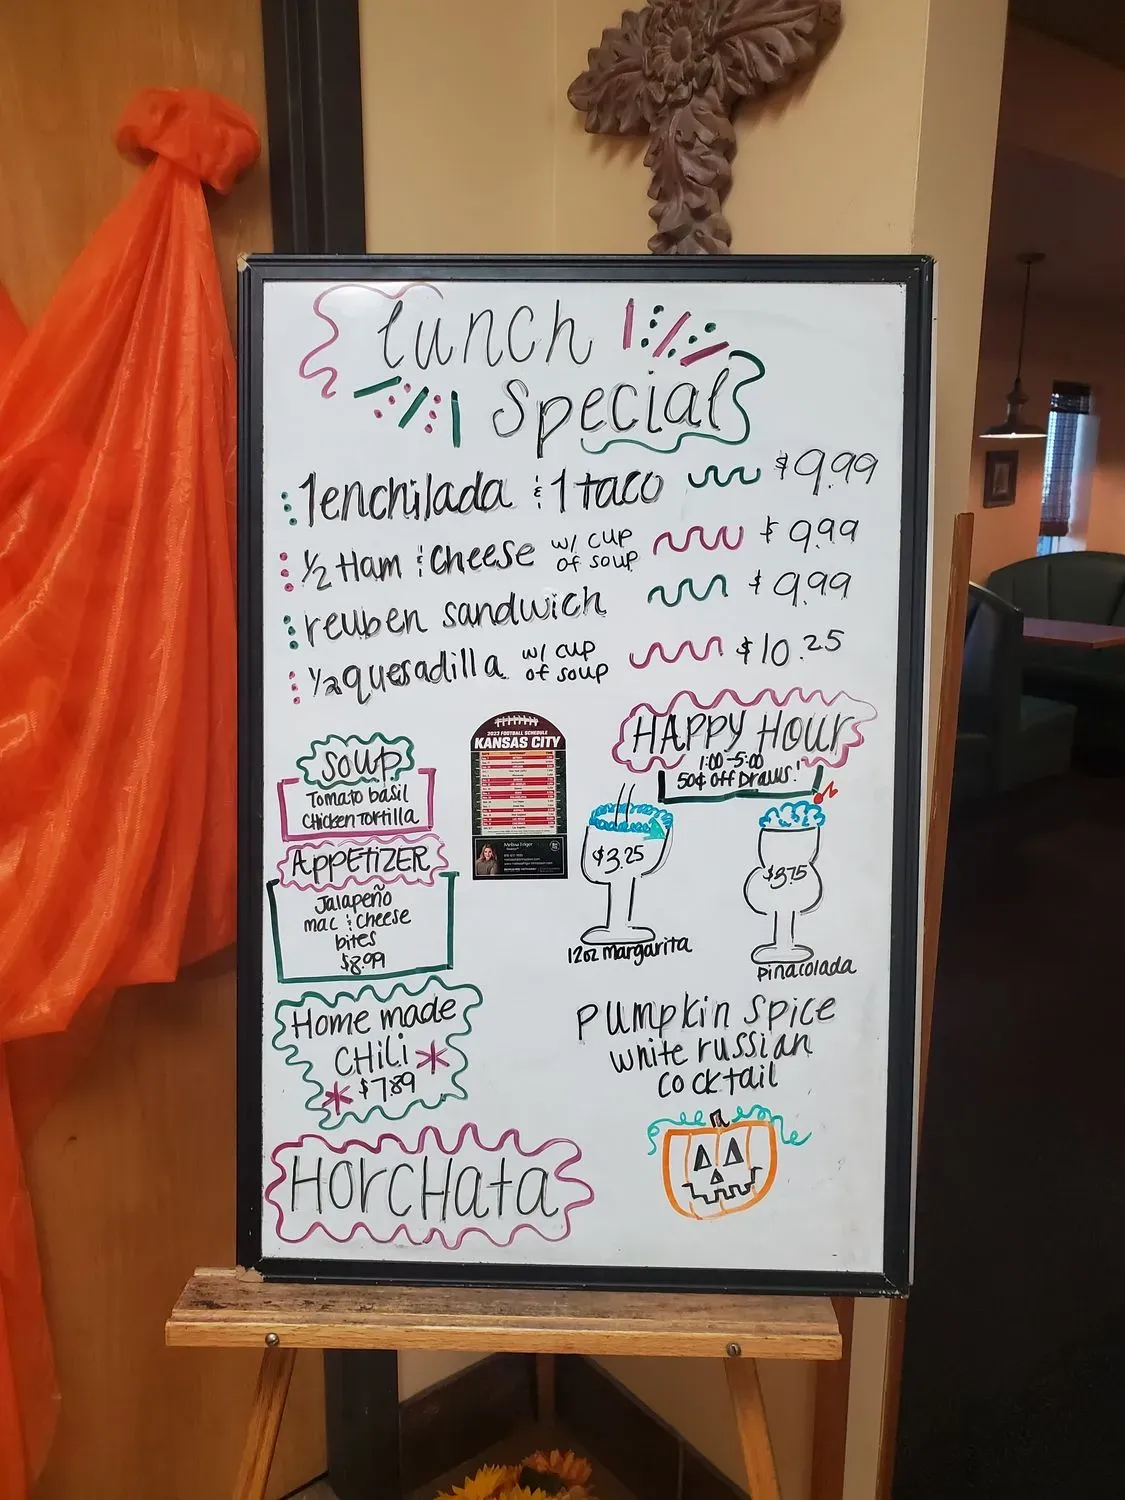 Lunch
Special
1 enchilada & 1 taco $9.99
1/2 Ham & Cheese w/ cup of soup $9.99
reuben sandwich $9.99
1/2 quesadilla w/ cup of soup $10.25
Soup
Tomato basil
Chicken Tortilla
APPETIZER
Jalapeño
mac & cheese
bites
$8.99
Home made
CHili
$7.89
HorCHata
2023 FOOTBALL SCHEDULE
KANSAS CITY
HAPPY HOUr
1:00-5:00
50¢ Off Draws!
$3.25
12oz margarita
$3.75
pinacolada
pumpkin spice
white russian
cocktail